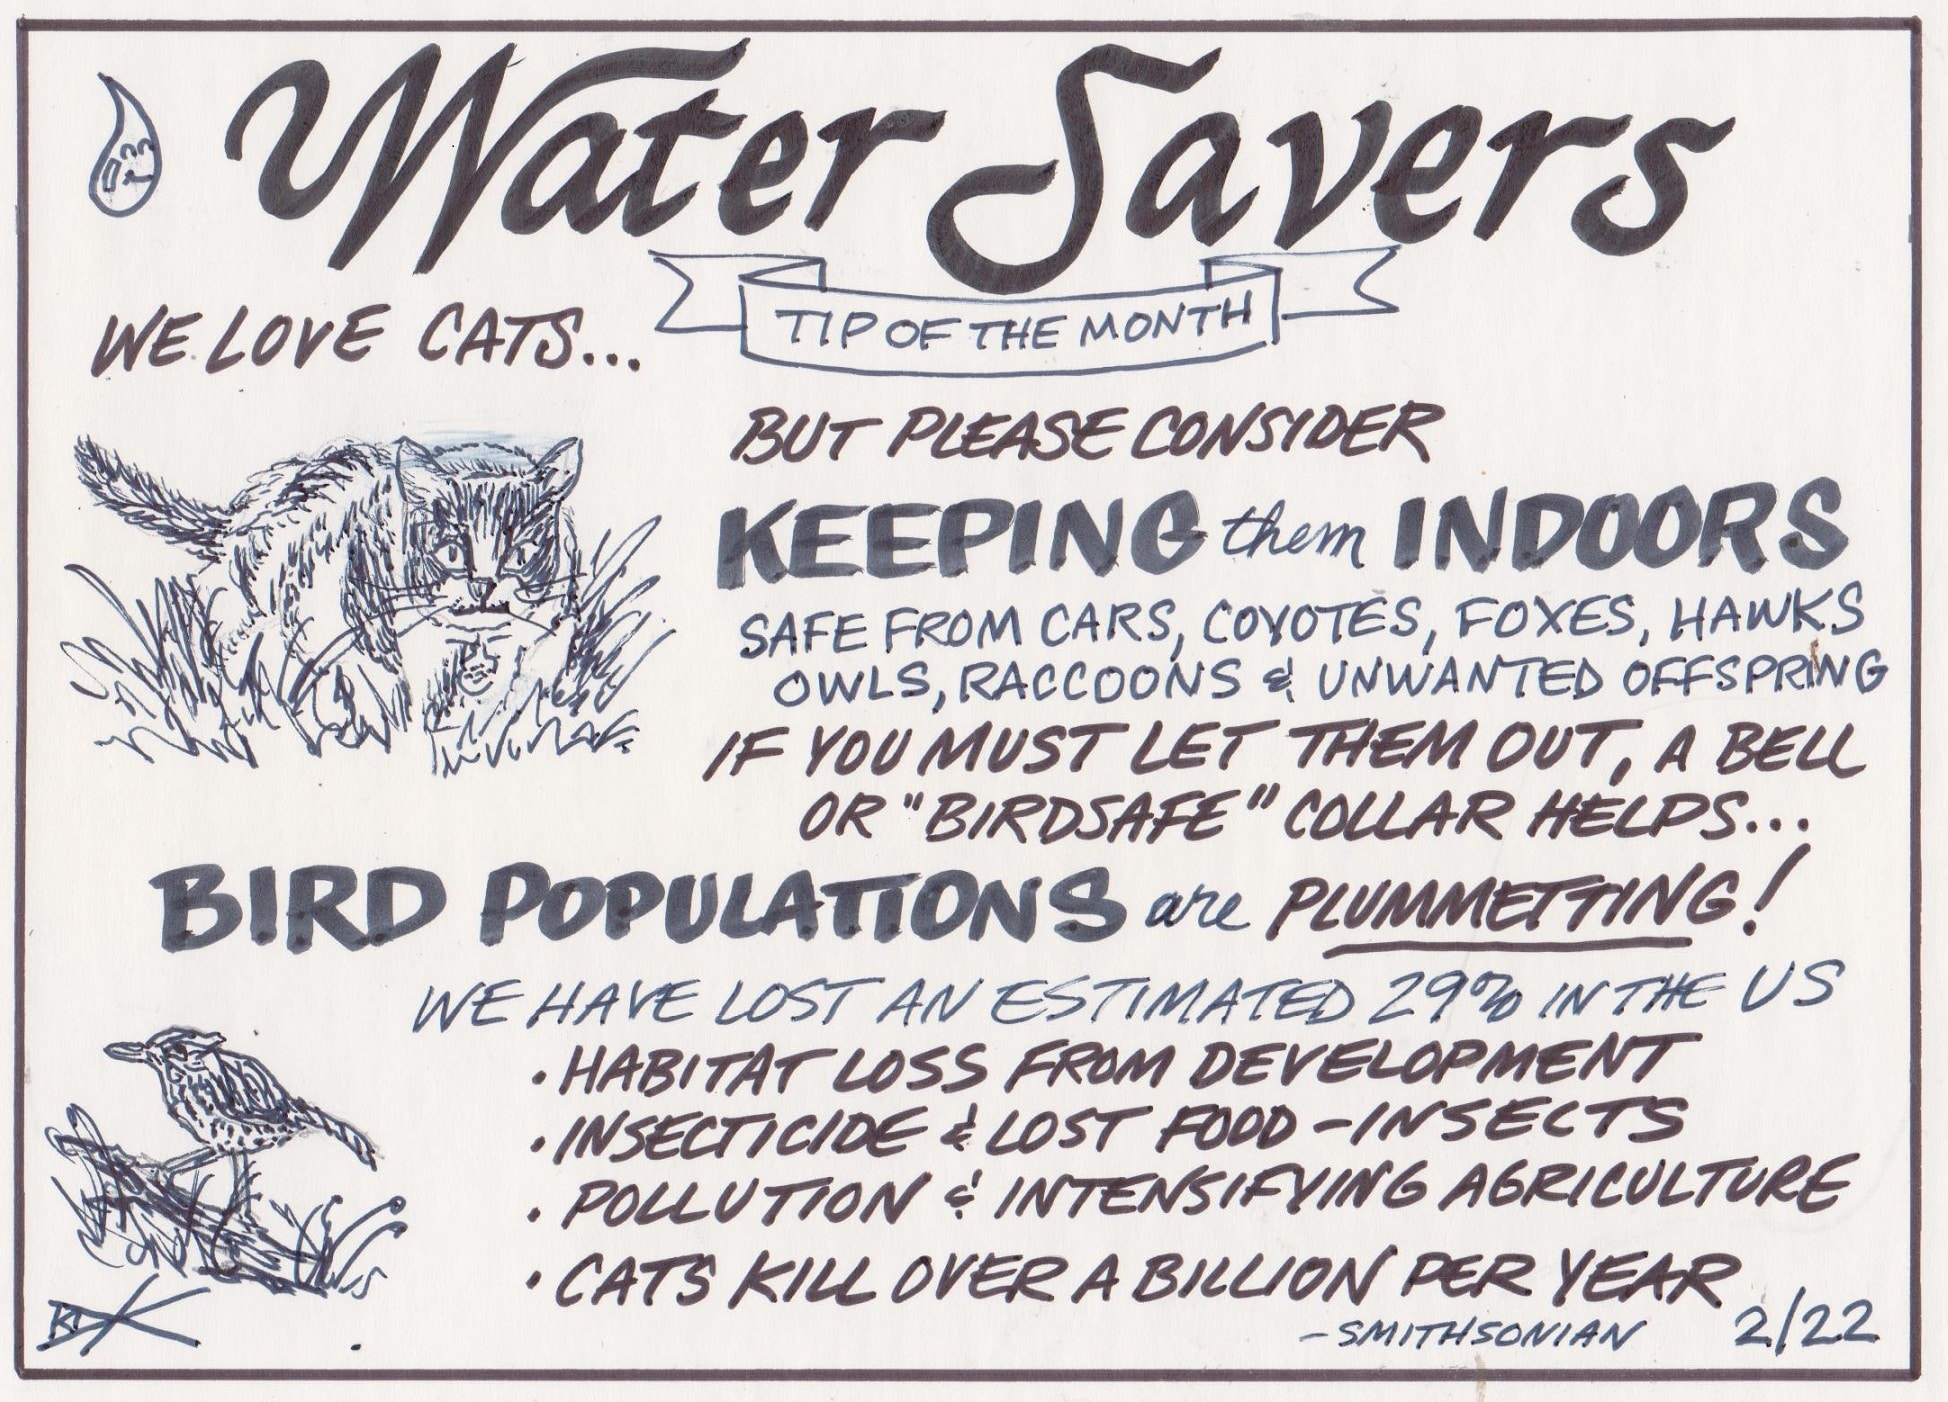 Water Savers
TIP OF THE MONTH
WE LOVE CATS...
BUT PLEASE CONSIDER
KEEPING them INDOORS
SAFE FROM CARS, COYOTES, FOXES, HAWKS
OWLS, RACCOONS & UNWANTED OFFSPRING
IF YOU MUST LET THEM OUT, A BELL
OR "BIRDSAFE" COLLAR HELPS...
BIRD POPULATIONS are PLUMMETTING!
WE HAVE LOST AN ESTIMATED 29% IN THE US
• HABITAT LOSS FROM DEVELOPMENT
• INSECTICIDE & LOST FOOD - INSECTS
• POLLUTION & INTENSIFYING AGRICULTURE
• CATS KILL OVER A BILLION PER YEAR
- SMITHSONIAN
2/22